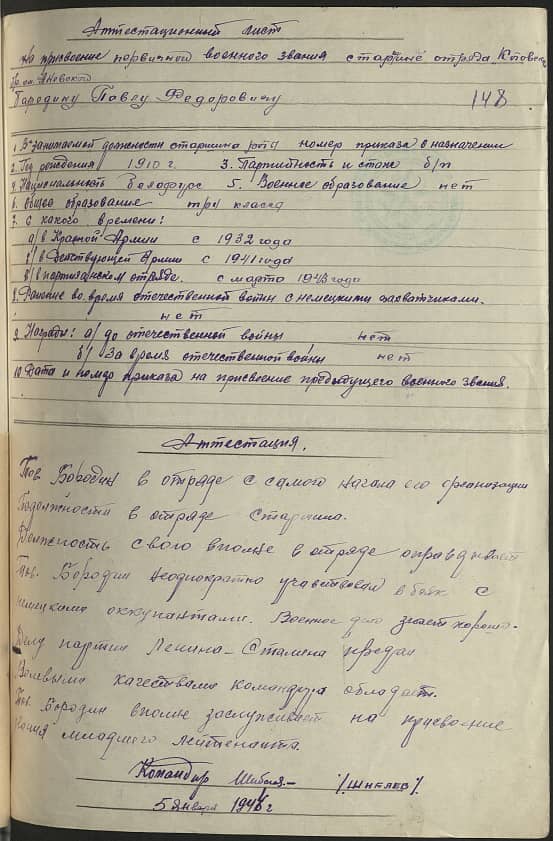 Аттестационный лист
на присвоение первичной военного звания старшине отряда
Бородину Павлу Федоровичу 148
1. В занимаемой должности старшина рота номер приказа о назначении
2. Год рождения 1910 г. 3. Партийность и стаж б/п
4. Национальность Белорус 5. Военное образование нет
6. общее образование три класса
7. С какого времени:
а/ в Красной Армии с 1932 года
б/ в Действующей Армии с 1941 года
в/ в партизанском отряде. с марта 1943 года
8. Ранение во время отечественной войны с немецкими захватчиками.
нет
9. Награды: а/ до отечественной войны нет
б/ За время отечественной войны нет
10. Дата и номер приказа на присвоение предыдущего военного звания.
Аттестация.
Тов. Бородин в отряде с самого начала его организации
в отряде Старшина.
Должность свою вполне в отряде оправдывает
Тов. Бородин неоднократно участвовал в боях с
немецкими оккупантами. Военное дело знает хорошо.
Делу партии Ленина-Сталина предан
Волевыми качествами командира обладает.
Тов. Бородин вполне заслуживает на присвоение
звания младшего лейтенанта.
Командир
5 января 1944 г